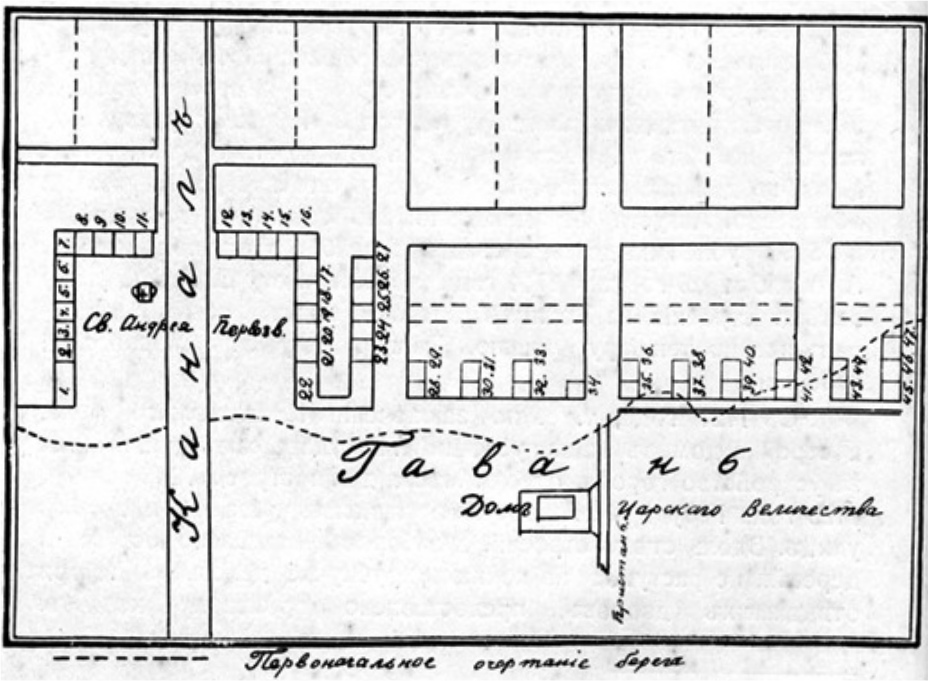 Каналъ
8. 9 10. 11.
12. 13. 14. 15. 16.
1. 2. 3. 4. 5. 6. 7.
Св. Андрея Первозв.
22 21. 20. 19. 18. 17.
23. 24. 25. 26. 27
28. 29. 30. 31. 32. 33. 34
35. 36. 37. 38. 39. 40. 41. 42. 43. 44. 45. 46. 47.
Гавань
Домъ Царского Величества
Первоначальное очертаніе берега